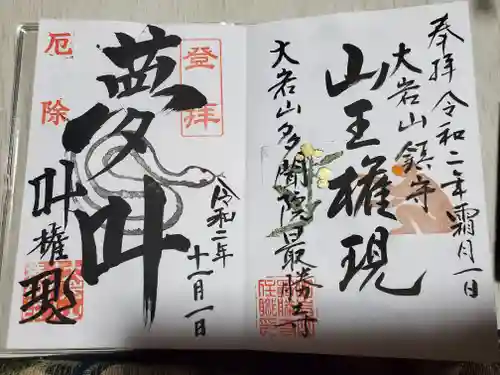 奉拝 令和二年霜月一日
大岩山鎮守
山王権現
大岩山多聞院最勝寺
登拝
夢叶
令和二年
十一月一日
厄除
叶権現